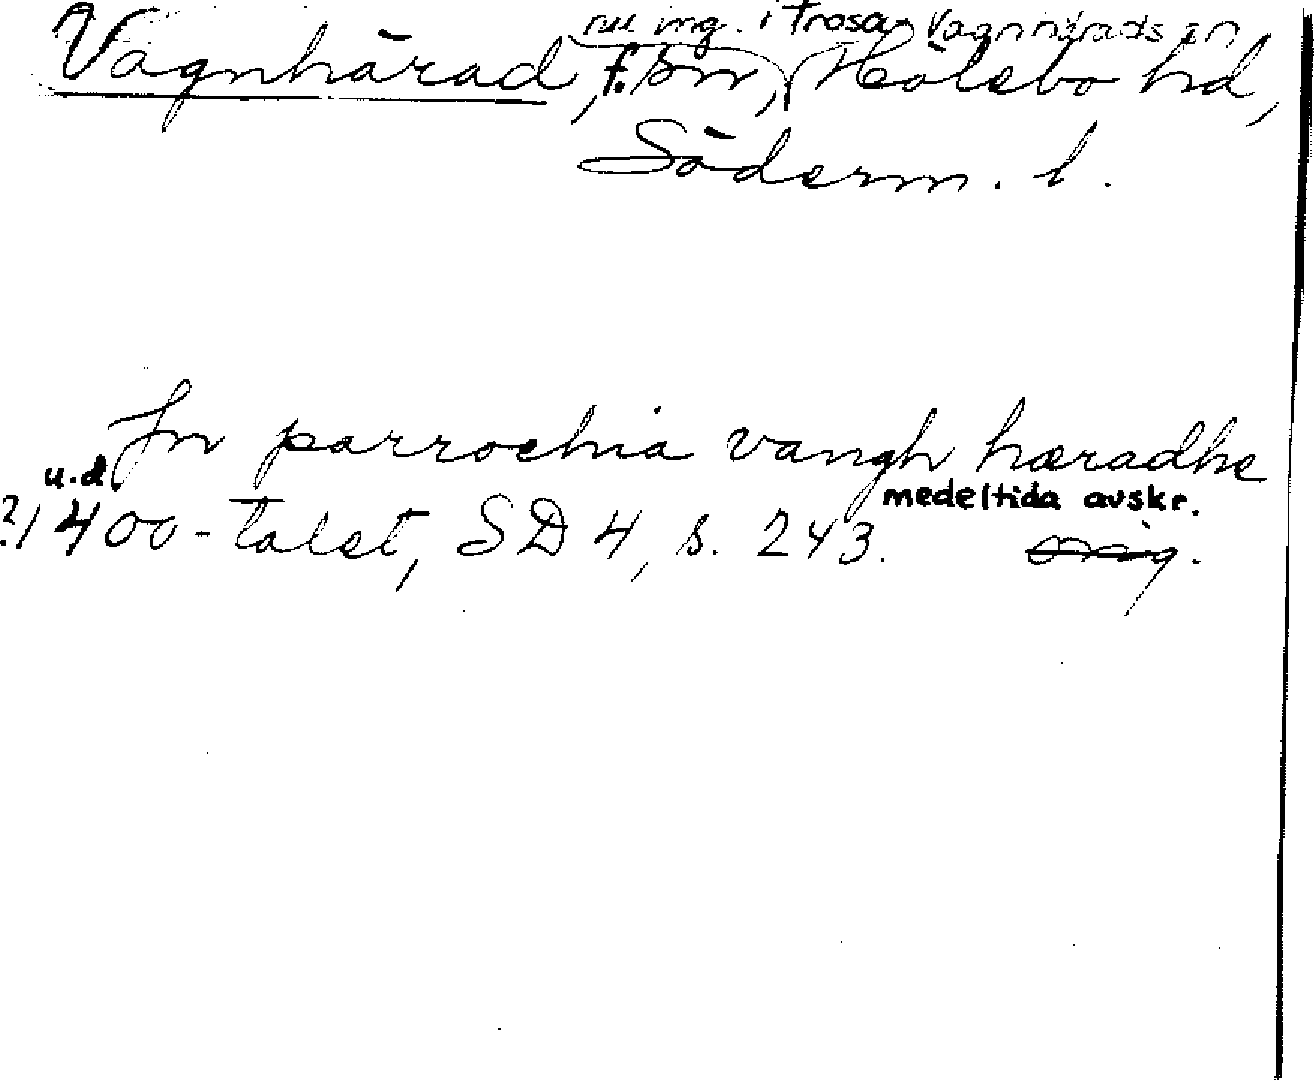 nu ing. i Trosa Vagnhärads sn
Vagnhärad, f. sn, Hölebo hd,
Söderm. l.
In parrochia vangh hæradhe
u.d. medeltida avskr.
?1400-talet, SD 4, s. 243. orig.